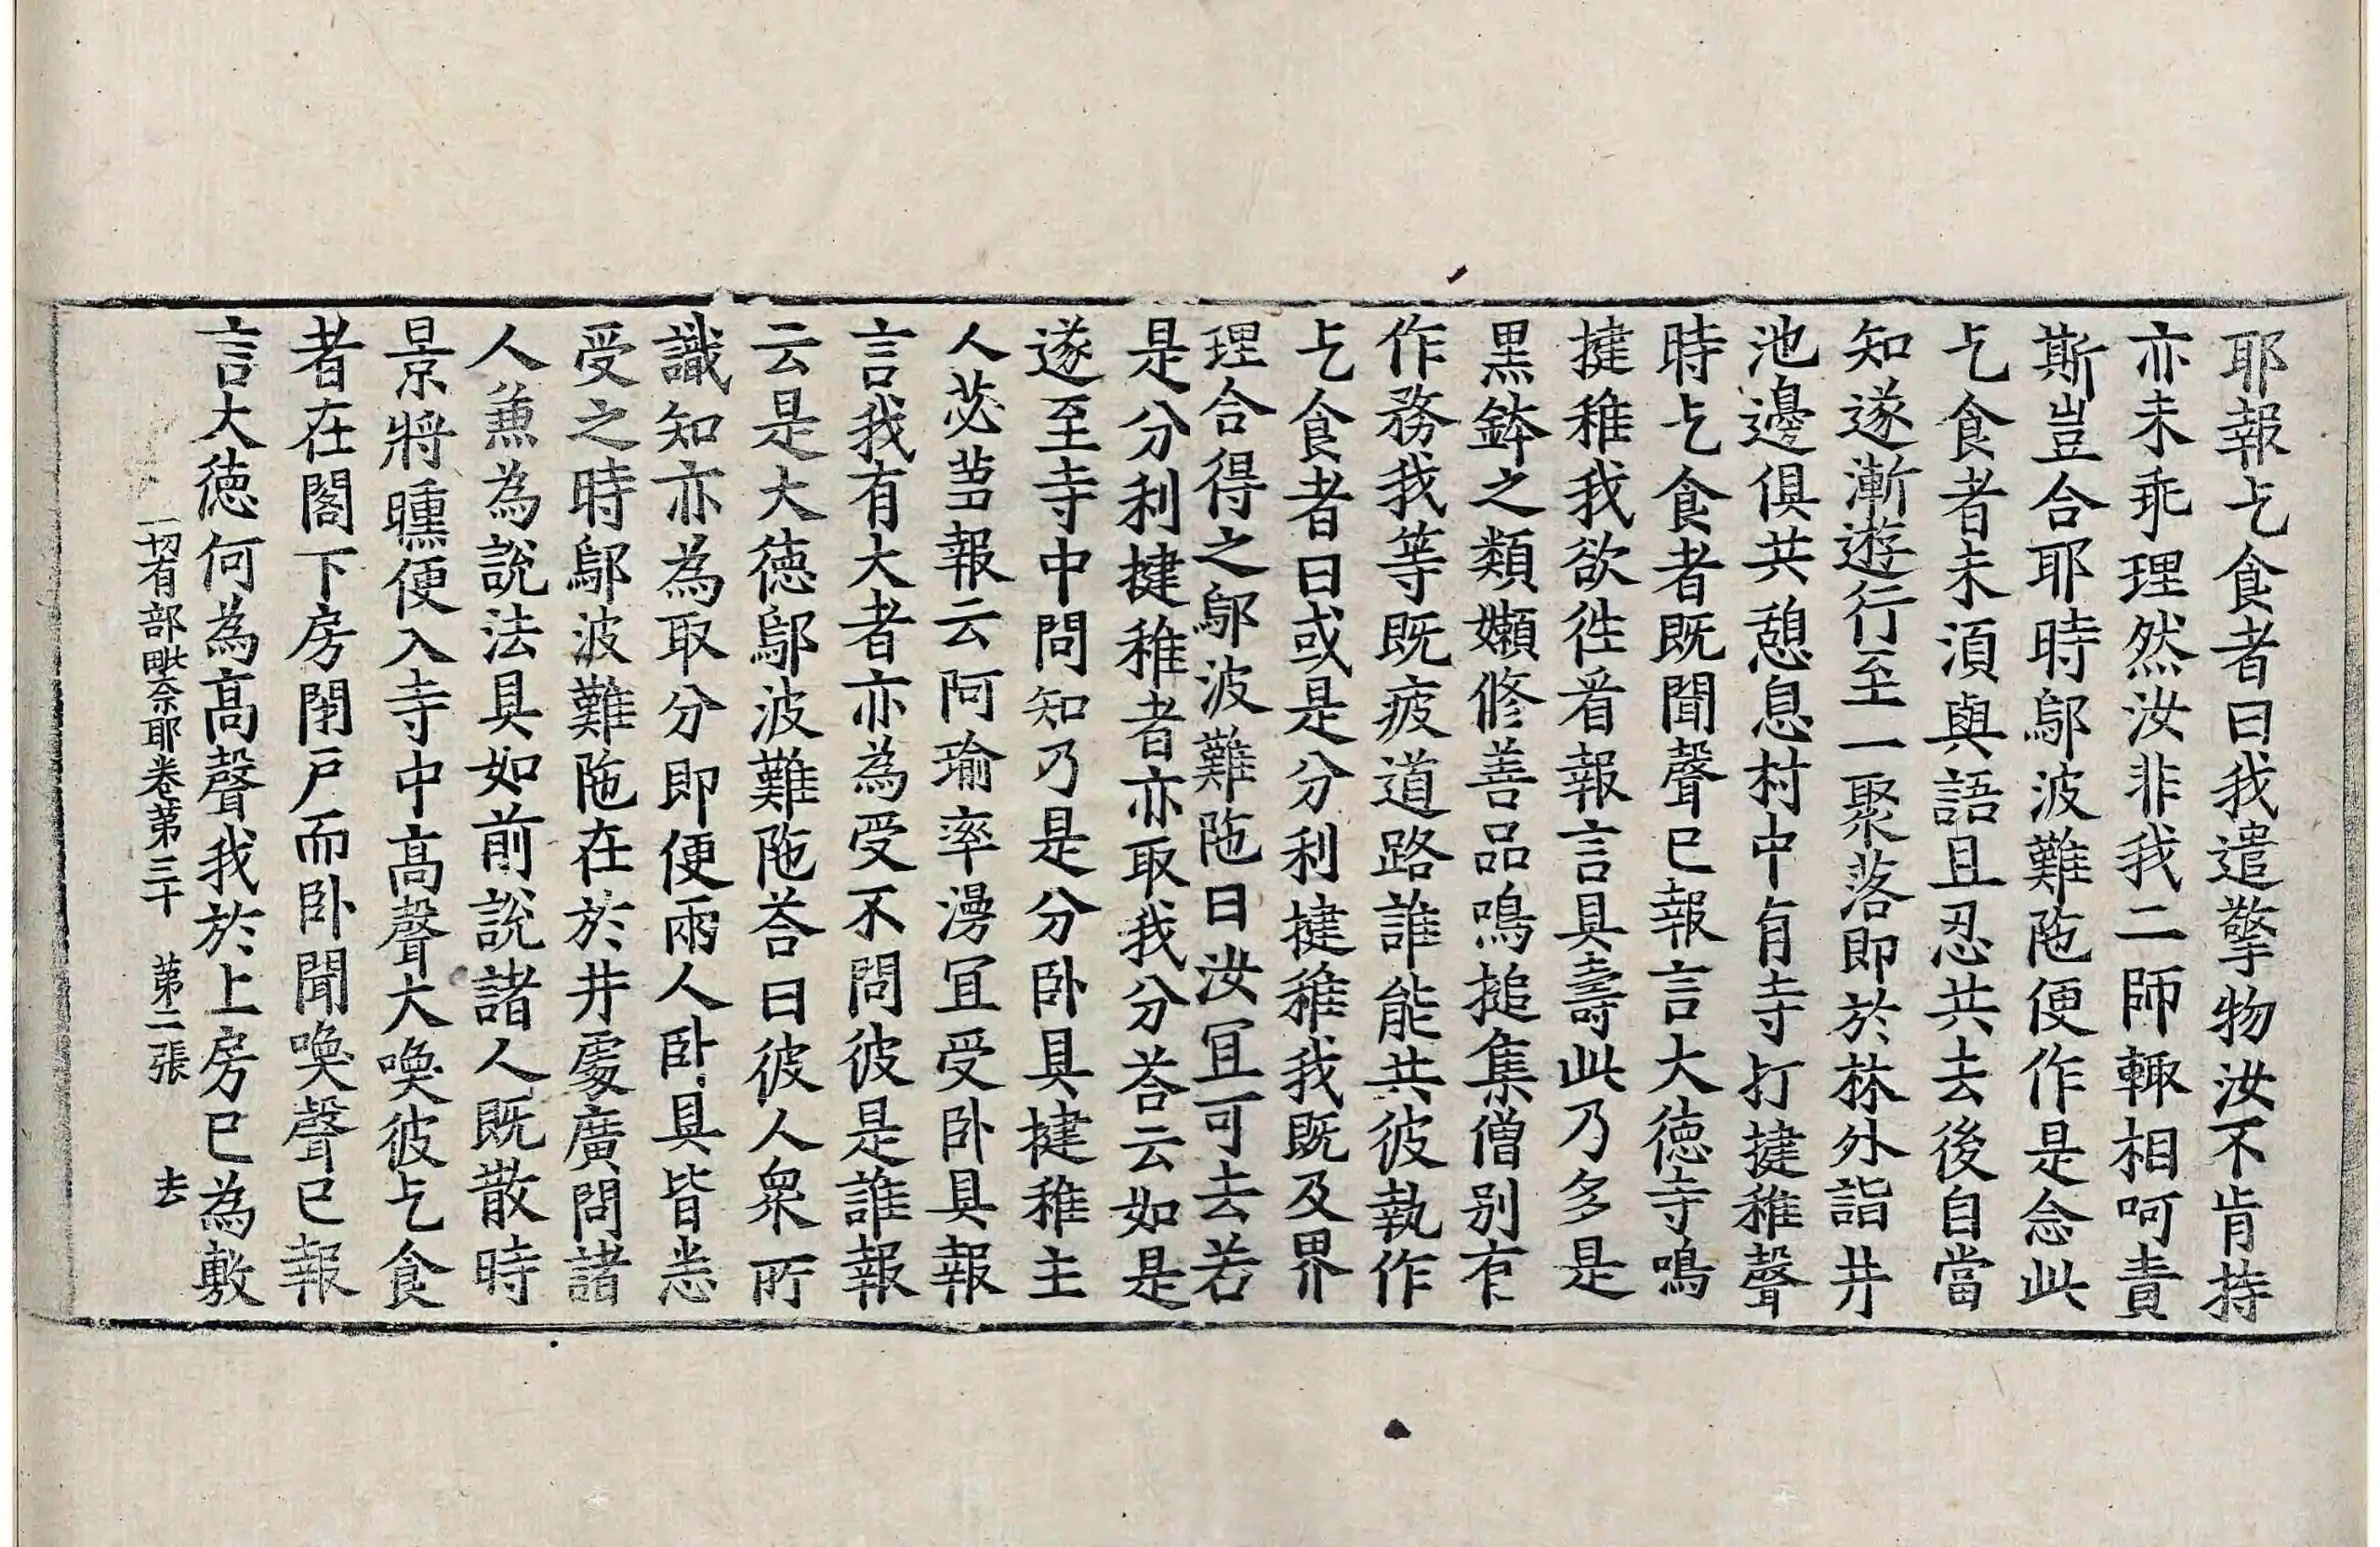 耶報乞食者曰我遣擎物汝不肯持
亦未乖理然汝非我二師輙相呵責
斯豈合耶時鄔波難陁便作是念此
乞食者未湏與語且忍共去後自當
知遂漸遊行至一聚落即於林外詣井
池邊俱共憩息村中有寺打揵稚聲
時乞食者既聞聲已報言大德寺鳴
揵稚我欲徃看報言具壽此乃多是
黑鉢之類嬾修善品鳴搥集僧别有
作務我等既疲道路誰能共彼執作
乞食者曰或是分利揵稚我既及界
理合得之鄔波難陁曰汝冝可去若
是分利揵稚者亦取我分荅云如是
遂至寺中問知乃是分卧具揵稚主
人苾蒭報云阿瑜率滿冝受卧具報
言我有大者亦為受不問彼是誰報
云是大德鄔波難陁荅曰彼人衆所
識知亦為取分即便兩人卧具皆悉
受之時鄔波難陁在於井處廣問諸
人兼為說法具如前說諸人既散時
景將曛便入寺中高聲大喚彼乞食
者在閣下房閉戸而卧聞喚聲已報
言大德何為高聲我於上房已為敷
一切有部毗奈耶卷第三十　第二張　去